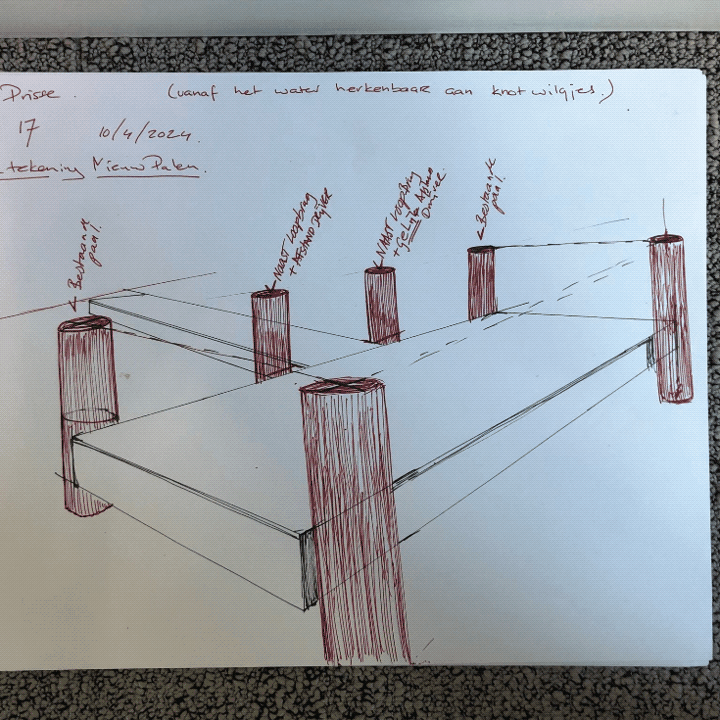 Prisse. (vanaf het water herkenbaar aan knotwilgjes.)
17 10/4/2024.
tekening Nieuw Palen.
Bestaande
paal.
NAAST Loopbrug
+ AFSTAND DRIJVER
NAAST Loopbrug
+ Gelijke Afstan
Drijver
Bestaande
paal.